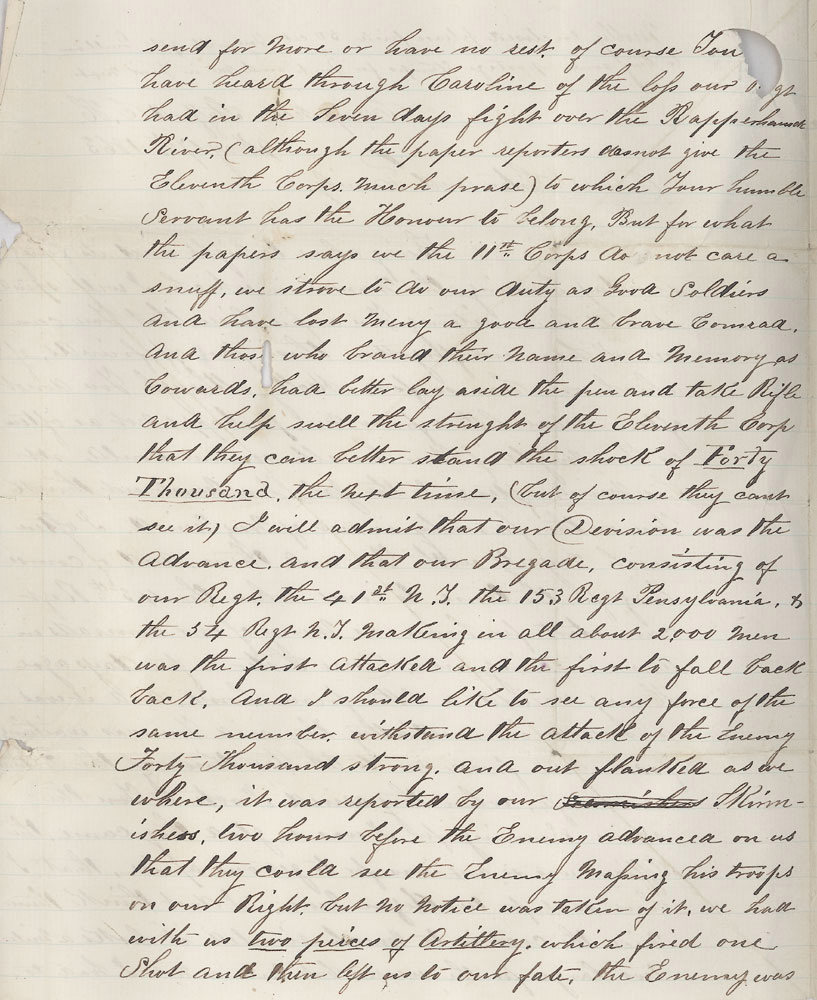 send for more or have no rest. of course You
have heard through Caroline of the loss our
had in the Seven days fight over the Rappahanock
River, (although the paper reporters doasnot give the
Eleventh Corps. much prase) to which Your humble
Servant has the Honour to belong, But for what
the papers says we the 11th Corps do not care a
snuff, we strove to do our duty as Good Soldiers
and have lost meny a good and brave Comrad.
And those who brand their Name and Memory as
Cowards, had better lay aside the pen and take Rifle
and help swell the strenght of the Eleventh Corp
that they can better stand the shock of Forty
Thousand, the next time, (but of course they cant
see it) I will admit that our Division was the
Advance, and that our Bregade, consisting of
our Regt. the 41st N.Y. the 153 Regt Pensylvania, &
the 54 Regt N.Y. Making in all about 2,000 Men
was the first Attacked and the first to fall back
back, And I should like to see any force of the
same number, withstand the attack of the Enemy
Forty Thousand strong. and out flanked as we
where, it was reported by our Skirm-
ishers, two hours before the Enemy advanced on us
that they could see the Enemy Massing his troops
on our Right. but no Notice was taken of it, we had
with us two peices of Artillery. which fired one
Shot and then left us to our fate, the Enemy was